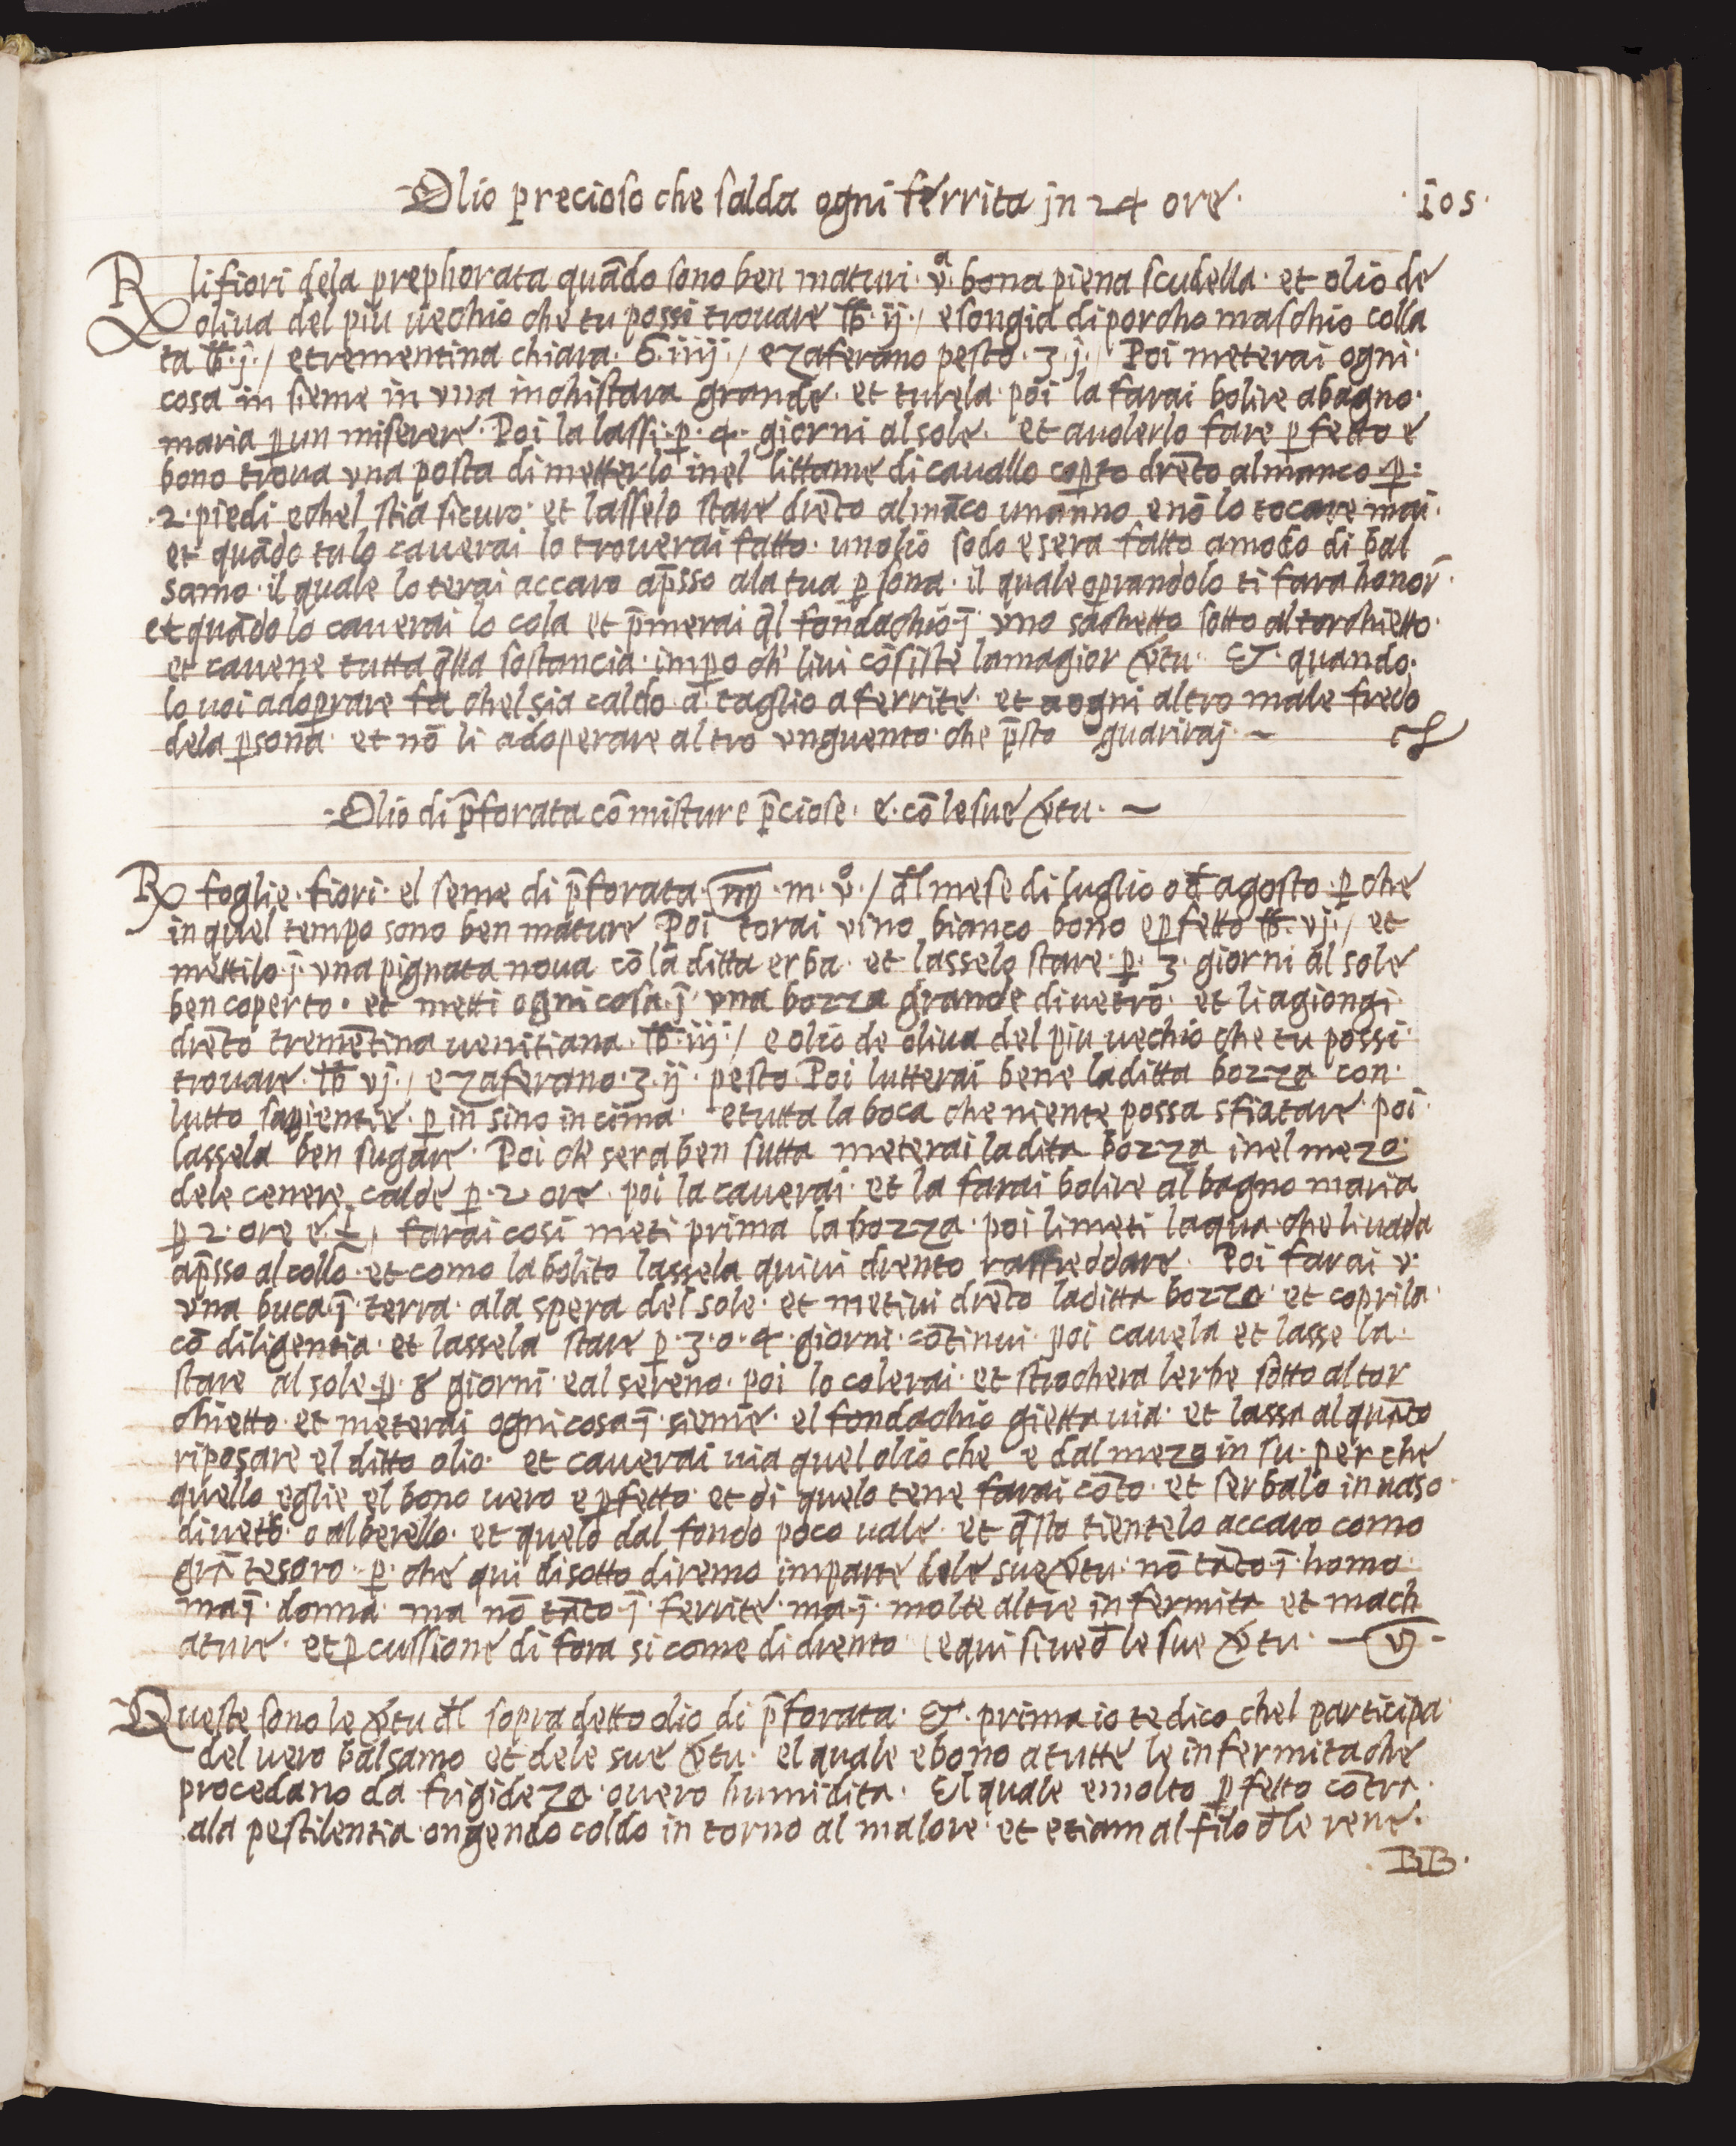 Olio precioso che salda ogni ferrita jn 24 ore·
·105·
℞ li fiori dela prephorata quādo sono ben maturi· v.ª bona piena scudella· et olio de
oliua del piu uechio che tu possi trouare ℔· ij·/ e songia di porcho maschio colla
ta ℔·j·/ et rementina chiara· iiij·/ e zaferano pesto· ʒ j·/ Poi meterai ogni·
cosa in sieme in vna inchistara grande· et turela· poi la farai bolire abagno·
maria ꝑ un miserere· Poi la lassi·ꝑ·4· giorni al sole· et auolerlo fare ꝑfetto e
bono troua vna posta di metterlo inel littame di cauallo coꝑto drēto almanco ꝑ·
·2· piedi e chel stia sicuro· et lasselo stare drēto almāco un anno e nō lo tocare mai·
et quādo tu lo cauerai lo trouerai fatto· un olio sodo e sera fatto amodo di bal
samo· il quale lo terai accaro ap̄sso ala tua ꝑsona· il quale oꝑandolo ti fara honor̄·
et quādo lo cauerai lo cola et p̄merai q̄l fondachio·ī· vno sachetto sotto al torchietto·
et cauene tutta q̄lla sostancia· imꝑo ch' liui cōsiste la magior v̄tu· Et· quando·
lo uoi adoprare fa chel sia caldo· a· taglio a ferrite· et a ogni altro male fredo
dela ꝑsona· et nō li adoperare altro vnguento· che p̄sto guariraj·
Olio di p̄forata cō misture p̄ciose· e· cō le sue v̄tu·
℞ foglie· fiori· el seme di p̄forata· m· v.º·/ d̄l mese di luglio o d̄ agosto· ꝑ che
in quel tempo sono ben mature Poi torai vino bianco bono e ꝑfetto ℔· vj·/ et
mettilo·ī· vna pignata noua cō la ditta erba· et lasselo stare· ꝑ· 3· giorni al sole
ben coperto· et metti ogni cosa·ī· vna bozza grande di uetro· et li agiongi·
drēto tremētina uenitiana· ℔· iij·/ e olio de oliua del piu uechio che tu possi·
trouare· ℔ vj·/ e zaferano· ʒ· ij· pesto· Poi lutterai bene la ditta bozza con·
lutto sapientie· ꝑ in sino in cima· e tutta la boca che niente possa sfiatare· poi·
lassela ben sugare· Poi ch' sera ben sutta meterai la dita bozza inel mezo·
dele cenere calde ꝑ·2 ore· poi la cauerai· et la farai bolire al bagno maria
ꝑ 2· ore e·½·/ farai cosi meti prima la bozza· poi li meti laqua· che li uada
ap̄sso al collo· et como la bolito lassela quiui drento raffreddare· Poi farai v·
vna buca·ī· terra· ala spera del sole· et metiui drēto la ditta bozza· et coprila·
cō diligentia· et lassela stare ꝑ·3·o·4·giorni·cōtinui· poi cauela et lasse la·
stare al sole·ꝑ· 8 giorni· e al sereno· poi lo colerai· et strochera lerbe sotto al tor
chietto· et meterai ogni cosa·ī· sieme· el fondachio gietta uia· et lassa alquāto
riposare el ditto olio· et cauerai uia quel olio che e dal mezo in su· per che
quello eglie el bono uero e ꝑfetto· et di quelo tene farai cōto· et serbalo in uaso·
di uet̄o· o alberello· et quelo dal fondo poco uale· et q̄sto tientelo accaro como
grā tesoro· ꝑ· che qui di sotto diremo imparte dele sue v̄tu· nō tāto·ī· homo·
ma·ī· donna· ma nō tāto·ī· ferrite· ma·ī· molte altre in fermita et mach
ature· et ꝑcussione di fora si come di drento (e qui si ued̄ le sue v̄tu·
Queste sono le v̄tu d̄l sopra detto olio di p̄forata· Et· prima io te dico chel participa·
del uero balsamo et dele sue v̄tu· el quale e bono a tutte le in fermita che
procedano da frigideza· ouero humidita· El quale e molto ꝑfetto cōtra·
ala pestilentia· ongendo coldo in torno al malore· et etiam al filo d̄le rene·
BB·